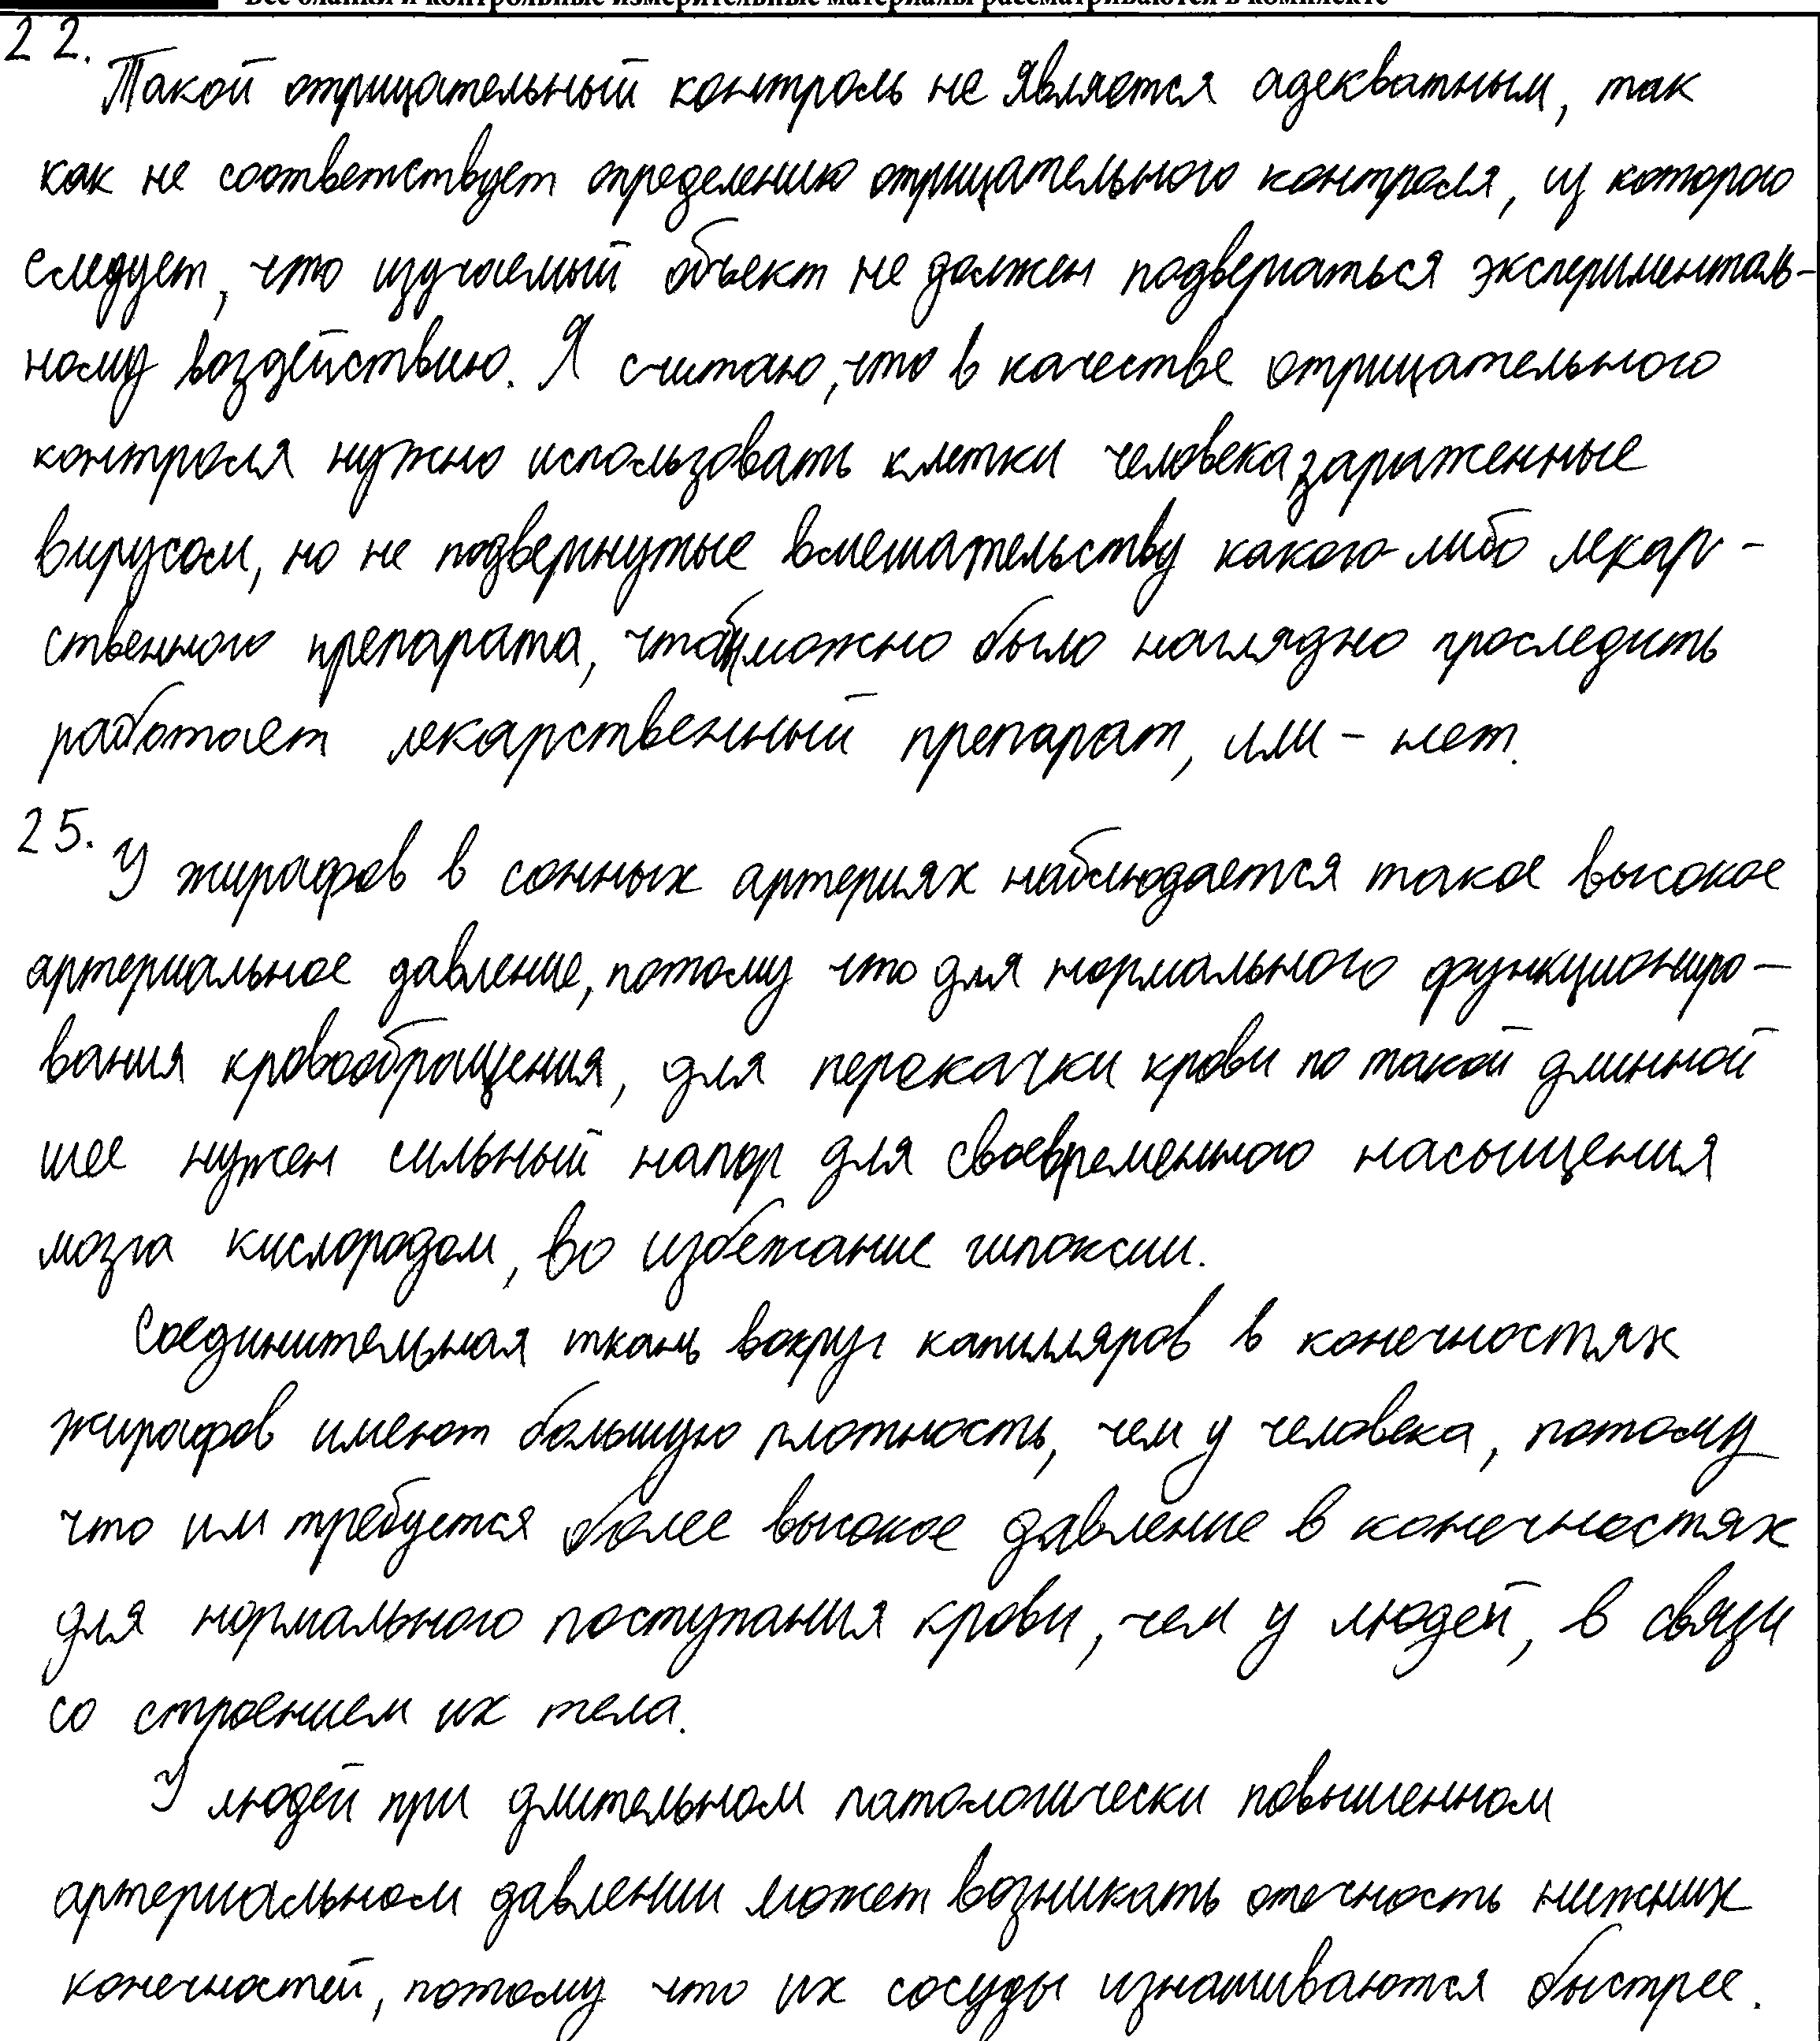 Все бланки и контрольные измерительные материалы рассматриваются в комплекте
22.
Такой отрицательный контроль не является адекватным, так
как не соответствует определению отрицательного контроля, из которого
следует, что изучаемый объект не должен подвергаться эксперименталь-
ному воздействию. Я считаю, что в качестве отрицательного
контроля нужно использовать клетки человека зараженные
вирусом, но не подвергнутые вмешательству какого-либо лекар-
ственного препарата, чтобы можно было наглядно проследить
работает лекарственный препарат, или - нет.
25.
У жирафов в сонных артериях наблюдается такое высокое
артериальное давление, потому что для нормального функциониро-
вания кровообращения, для перекачки крови по такой длинной
шее нужен сильный напор для своевременного насыщения
мозга кислородом, во избежание гипоксии.
Соединительная ткань вокруг капилляров в конечностях
жирафов имеют большую плотность, чем у человека, потому
что им требуется более высокое давление в конечностях
для нормального поступания крови, чем у людей, в связи
со строением их тела.
У людей при длительном патологически повышенном
артериальном давлении может возникать отечность нижних
конечностей, потому что их сосуды изнашиваются быстрее.